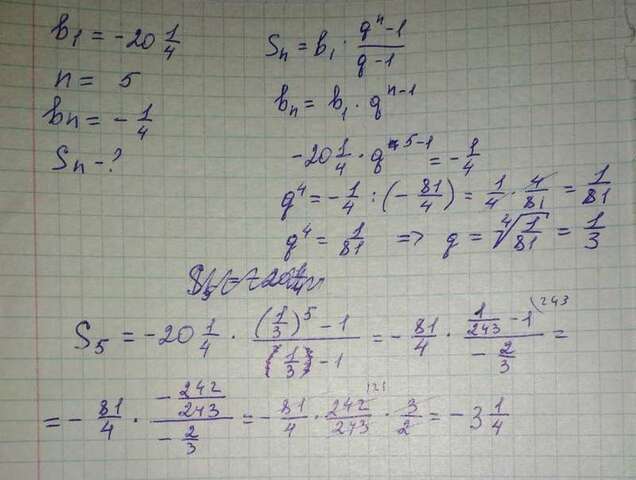 b₁ = -20 1/4
n = 5
bn = - 1/4
Sn - ?
Sn = b₁ · (qⁿ-1)/(q-1)
bn = b₁ · qⁿ⁻¹
-20 1/4 · q⁵⁻¹ = - 1/4
q⁴ = - 1/4 : (- 81/4) = 1/4 · 4/81 = 1/81
q⁴ = 1/81 => q = ⁴√(1/81) = 1/3
S₅ = -20 1/4 · ((1/3)⁵ - 1)/(1/3 - 1) = - 81/4 · (1/243 - 1\243)/(- 2/3) =
= - 81/4 · (- 242/243)/(- 2/3) = - 81/4 · 242/243 121 · 3/2 = -3 1/4